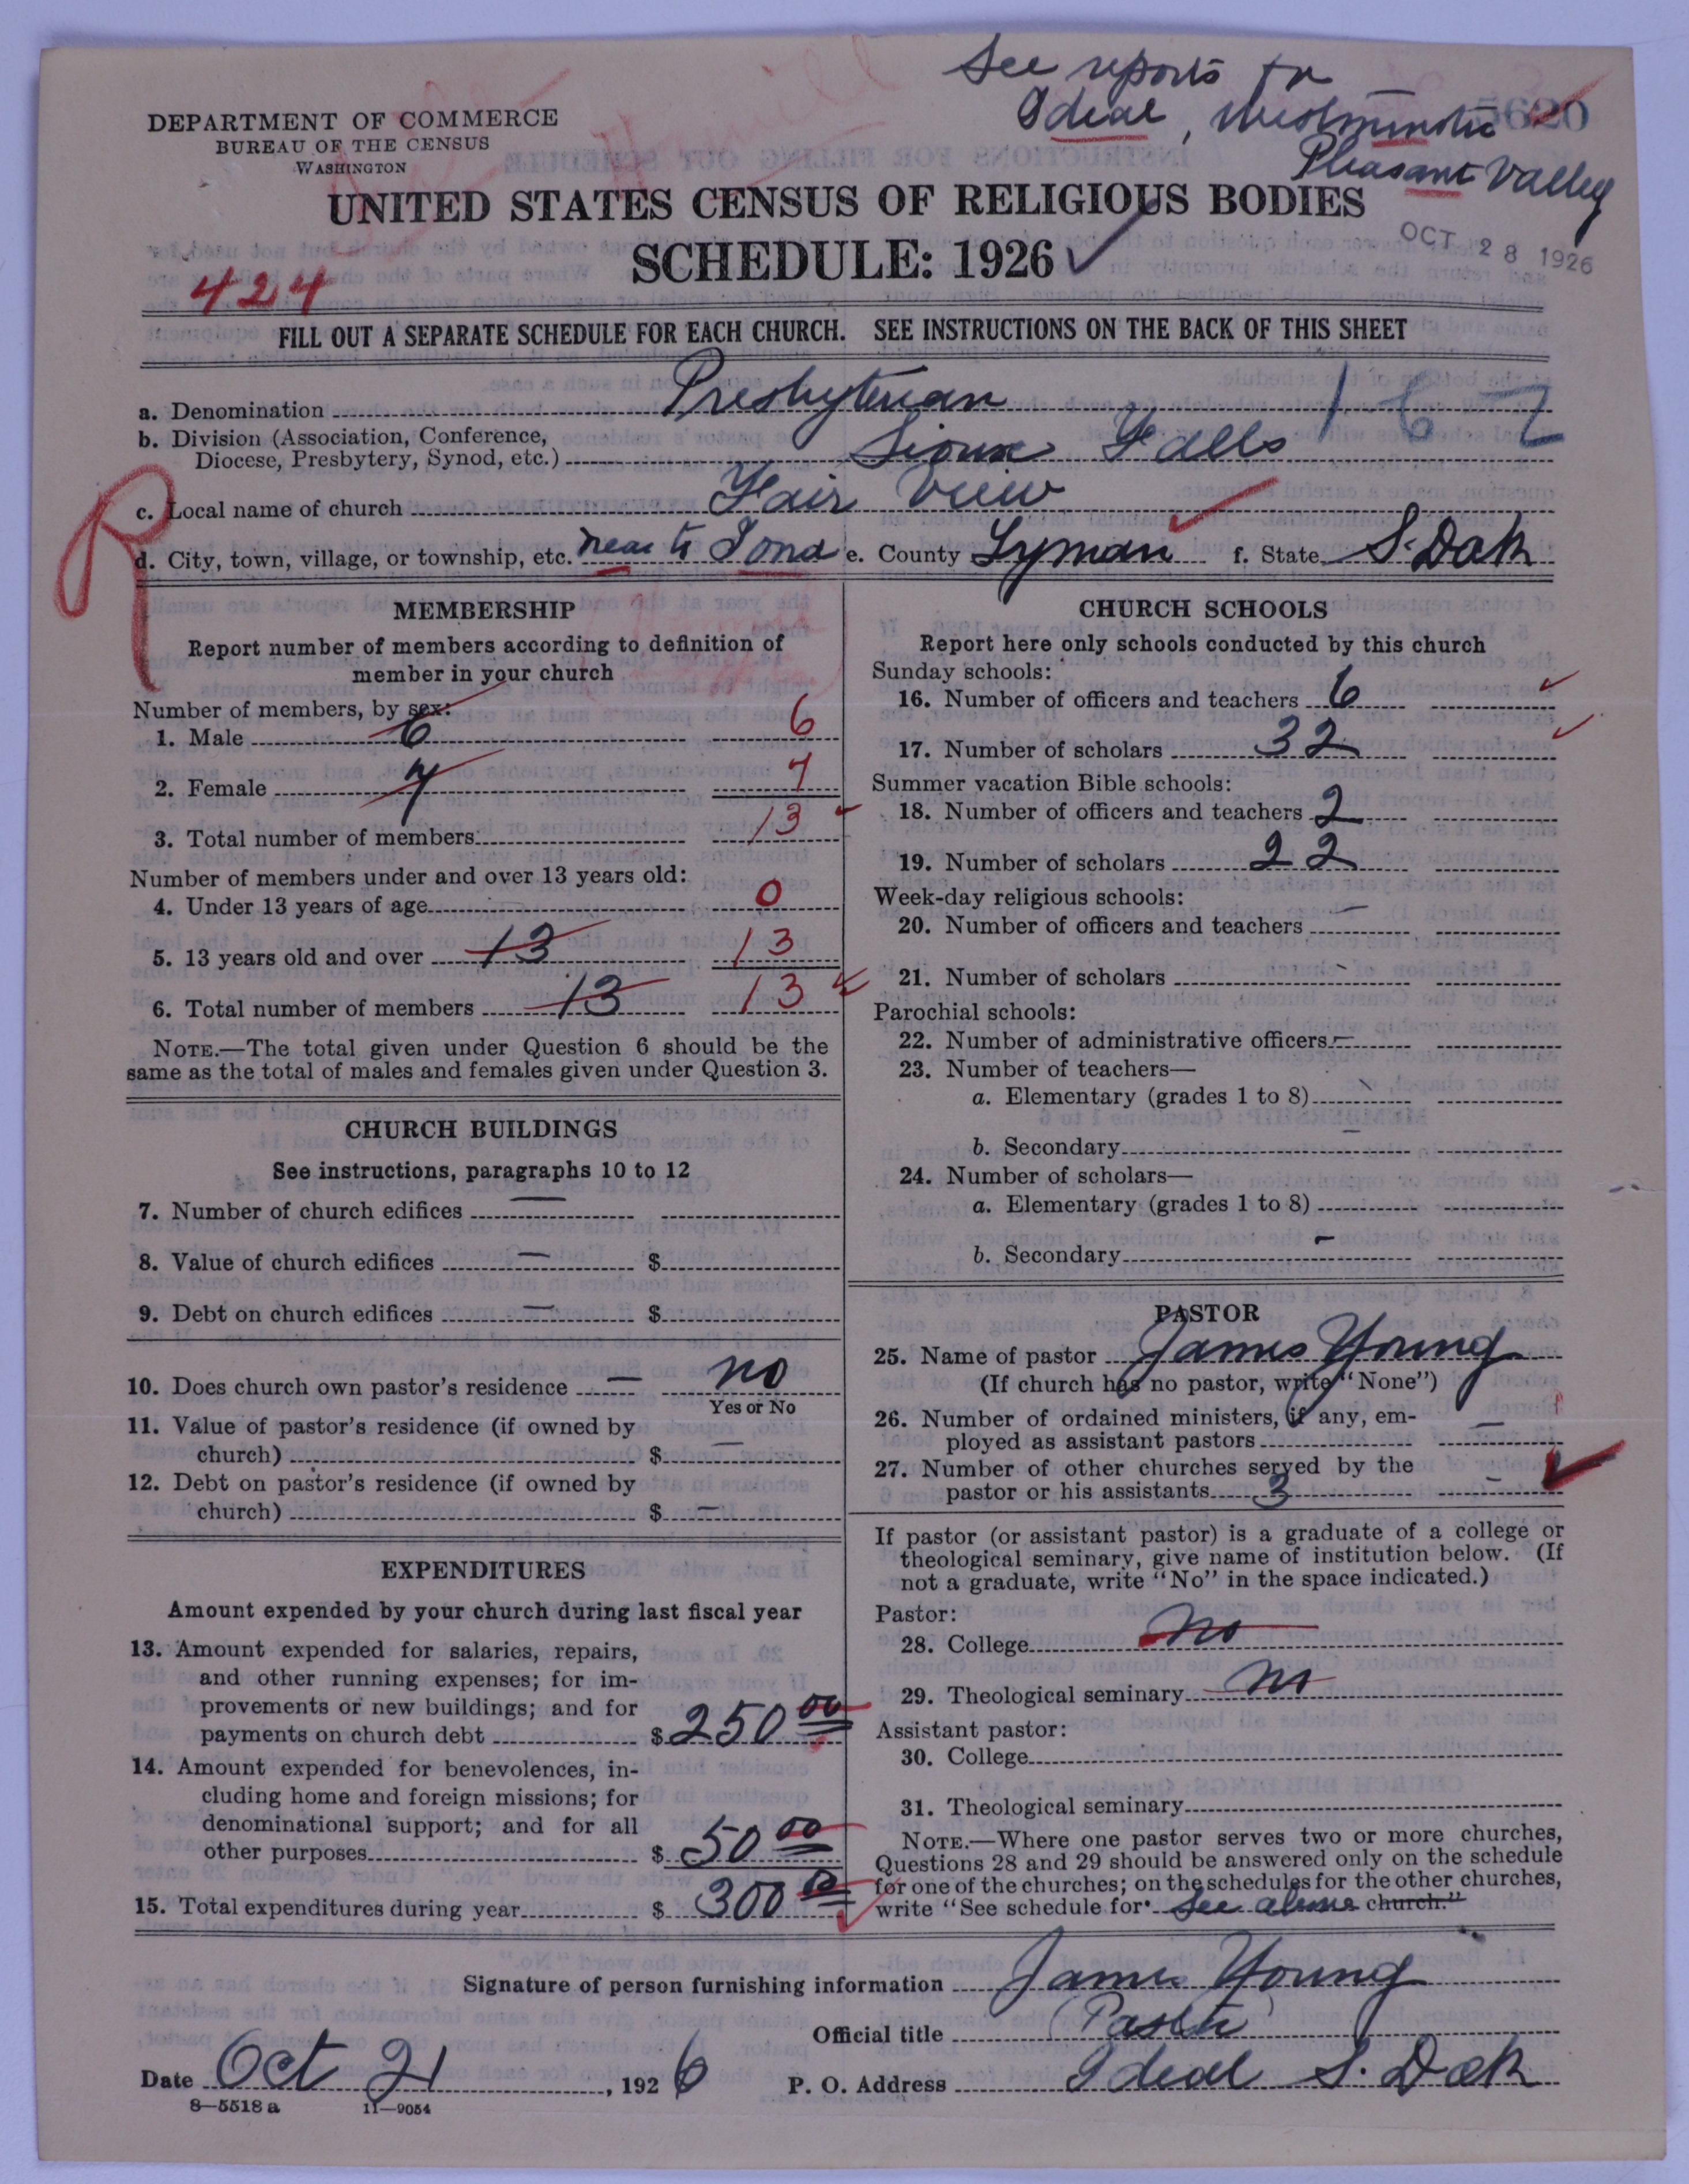 See reports for
Ideal, Westminster
Pleasant Valley
5620
DEPARTMENT OF COMMERCE
BUREAU OF THE CENSUS
WASHINGTON
UNITED STATES CENSUS OF RELIGIOUS BODIES
SCHEDULE: 1926
OCT 28 1926
424
FILL OUT A SEPARATE SCHEDULE FOR EACH CHURCH. SEE INSTRUCTIONS ON THE BACK OF THIS SHEET
a. Denomination Presbyterian 167
b. Division (Association, Conference,
Diocese, Presbytery, Synod, etc.) Sioux Falls
R
c. Local name of church Fair View
d. City, town, village, or township, etc. near to Iona e. County Lyman f. State S. Dak
MEMBERSHIP
Report number of members according to definition of
member in your church
Number of members, by sex:
1. Male 6 6
2. Female 7 7
3. Total number of members 13
Number of members under and over 13 years old:
4. Under 13 years of age 0
5. 13 years old and over 13 13
6. Total number of members 13 13
NOTE.—The total given under Question 6 should be the
same as the total of males and females given under Question 3.
CHURCH BUILDINGS
See instructions, paragraphs 10 to 12
7. Number of church edifices —
8. Value of church edifices — $
9. Debt on church edifices — $
10. Does church own pastor's residence — no
Yes or No
11. Value of pastor's residence (if owned by
church) $ —
12. Debt on pastor's residence (if owned by
church) $ —
EXPENDITURES
Amount expended by your church during last fiscal year
13. Amount expended for salaries, repairs,
and other running expenses; for im-
provements or new buildings; and for
payments on church debt $ 250 00
14. Amount expended for benevolences, in-
cluding home and foreign missions; for
denominational support; and for all
other purposes $ 50 00
15. Total expenditures during year $ 300 00
CHURCH SCHOOLS
Report here only schools conducted by this church
Sunday schools:
16. Number of officers and teachers 6
17. Number of scholars 32
Summer vacation Bible schools:
18. Number of officers and teachers 2
19. Number of scholars 22
Week-day religious schools:
20. Number of officers and teachers —
21. Number of scholars -
Parochial schools:
22. Number of administrative officers —
23. Number of teachers—
a. Elementary (grades 1 to 8) -
b. Secondary —
24. Number of scholars—
a. Elementary (grades 1 to 8)
b. Secondary -
PASTOR
25. Name of pastor James Young
(If church has no pastor, write "None")
26. Number of ordained ministers, if any, em-
ployed as assistant pastors —
27. Number of other churches served by the
pastor or his assistants 3 —
If pastor (or assistant pastor) is a graduate of a college or
theological seminary, give name of institution below. (If
not a graduate, write "No" in the space indicated.)
Pastor:
28. College no
29. Theological seminary no
Assistant pastor:
30. College
31. Theological seminary
NOTE.—Where one pastor serves two or more churches,
Questions 28 and 29 should be answered only on the schedule
for one of the churches; on the schedules for the other churches,
write "See schedule for see above church."
Signature of person furnishing information James Young
Official title Pastor
Date Oct 21, 1926 P. O. Address Ideal S. Dak
8—5518 a 11—9054